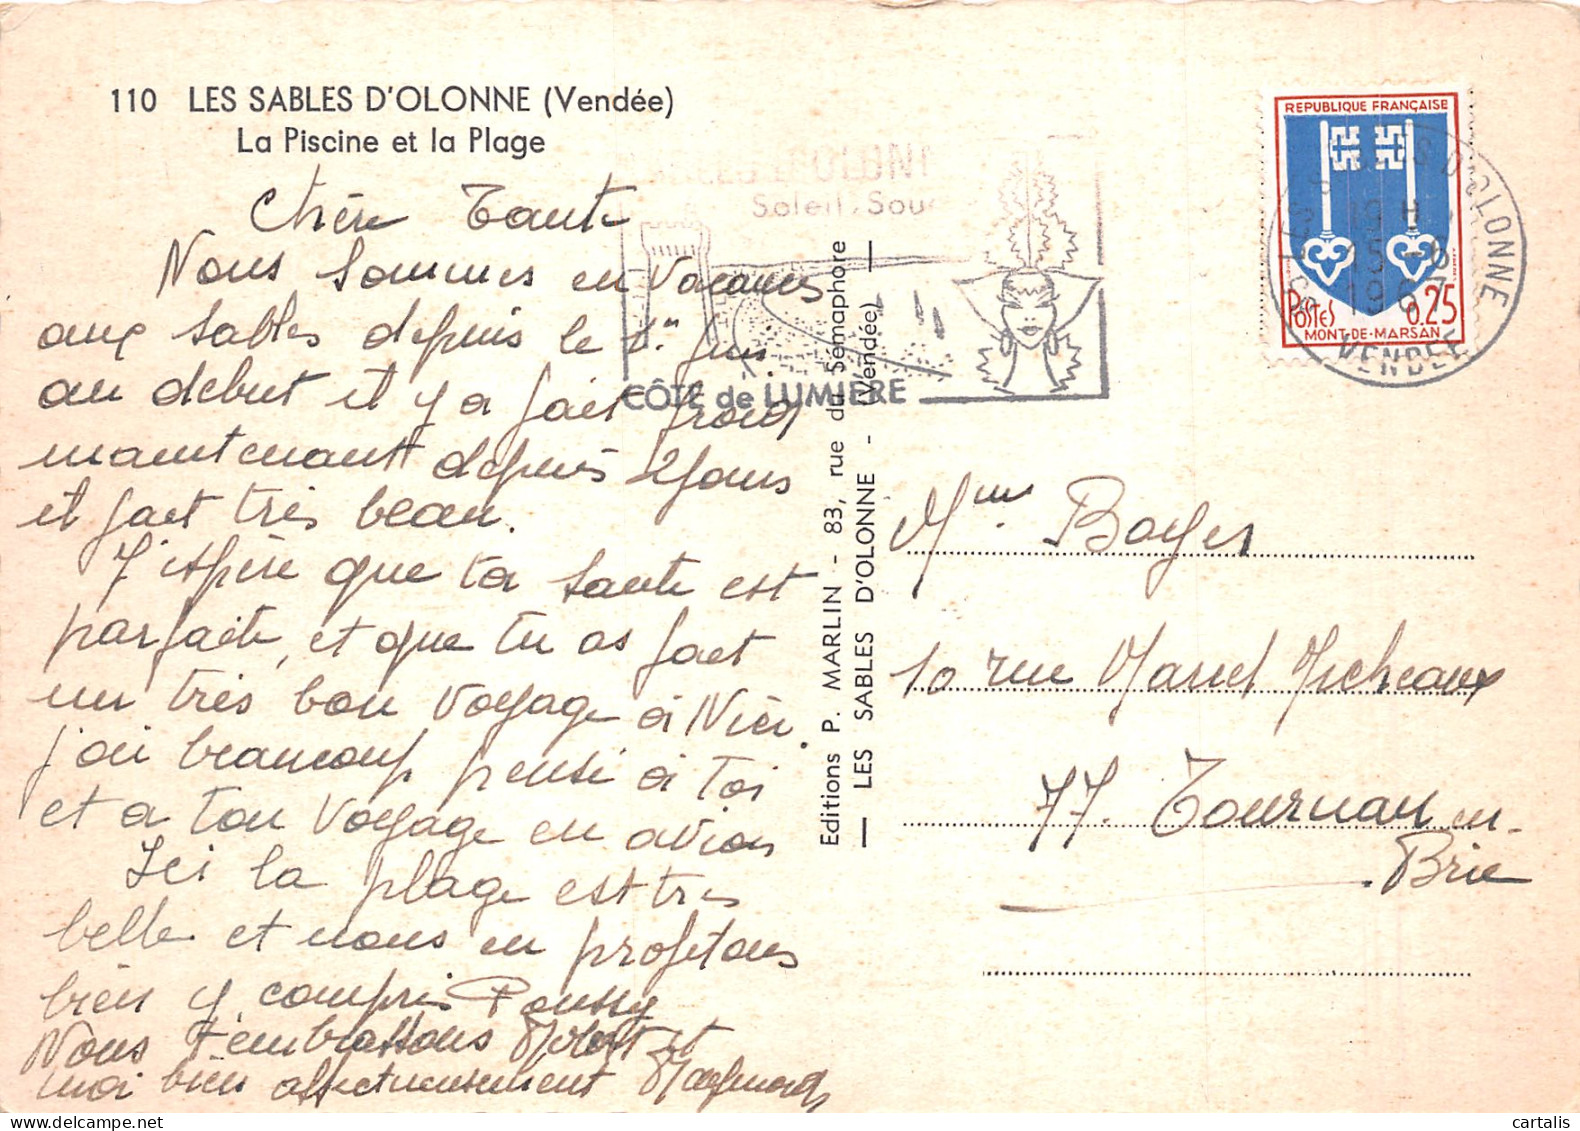 110 LES SABLES D'OLONNE (Vendée)
La Piscine et la Plage
Chère Tante
Nous sommes en vacances
aux sables depuis le 1er juin
au debut il y a fait froid
maintenant depuis 2 jours
il fait très beau.
J'espère que ta santé est
parfaite, et que tu as fait
un très bon voyage à Nice.
j'ai beaucoup pensé à Toi
et a ton voyage en avion
Ici la plage est très
belle et nous en profitons
bien y compris Poussy
Nous t'embrassons et
moi bien affectueusement
Editions P. MARLIN - 83, rue du Sémaphore
— LES SABLES D'OLONNE - (Vendée) —
Soleil, Sou
CÔTE de LUMIÈRE
REPUBLIQUE FRANÇAISE
POSTES 0.25
MONT-DE-MARSAN
LES SABLES D'OLONNE
19 H
15-6
1967
VENDEE
Mme Boyer
10 rue Marcel Micheaux
77. Tournan en-
Brie
cartalis